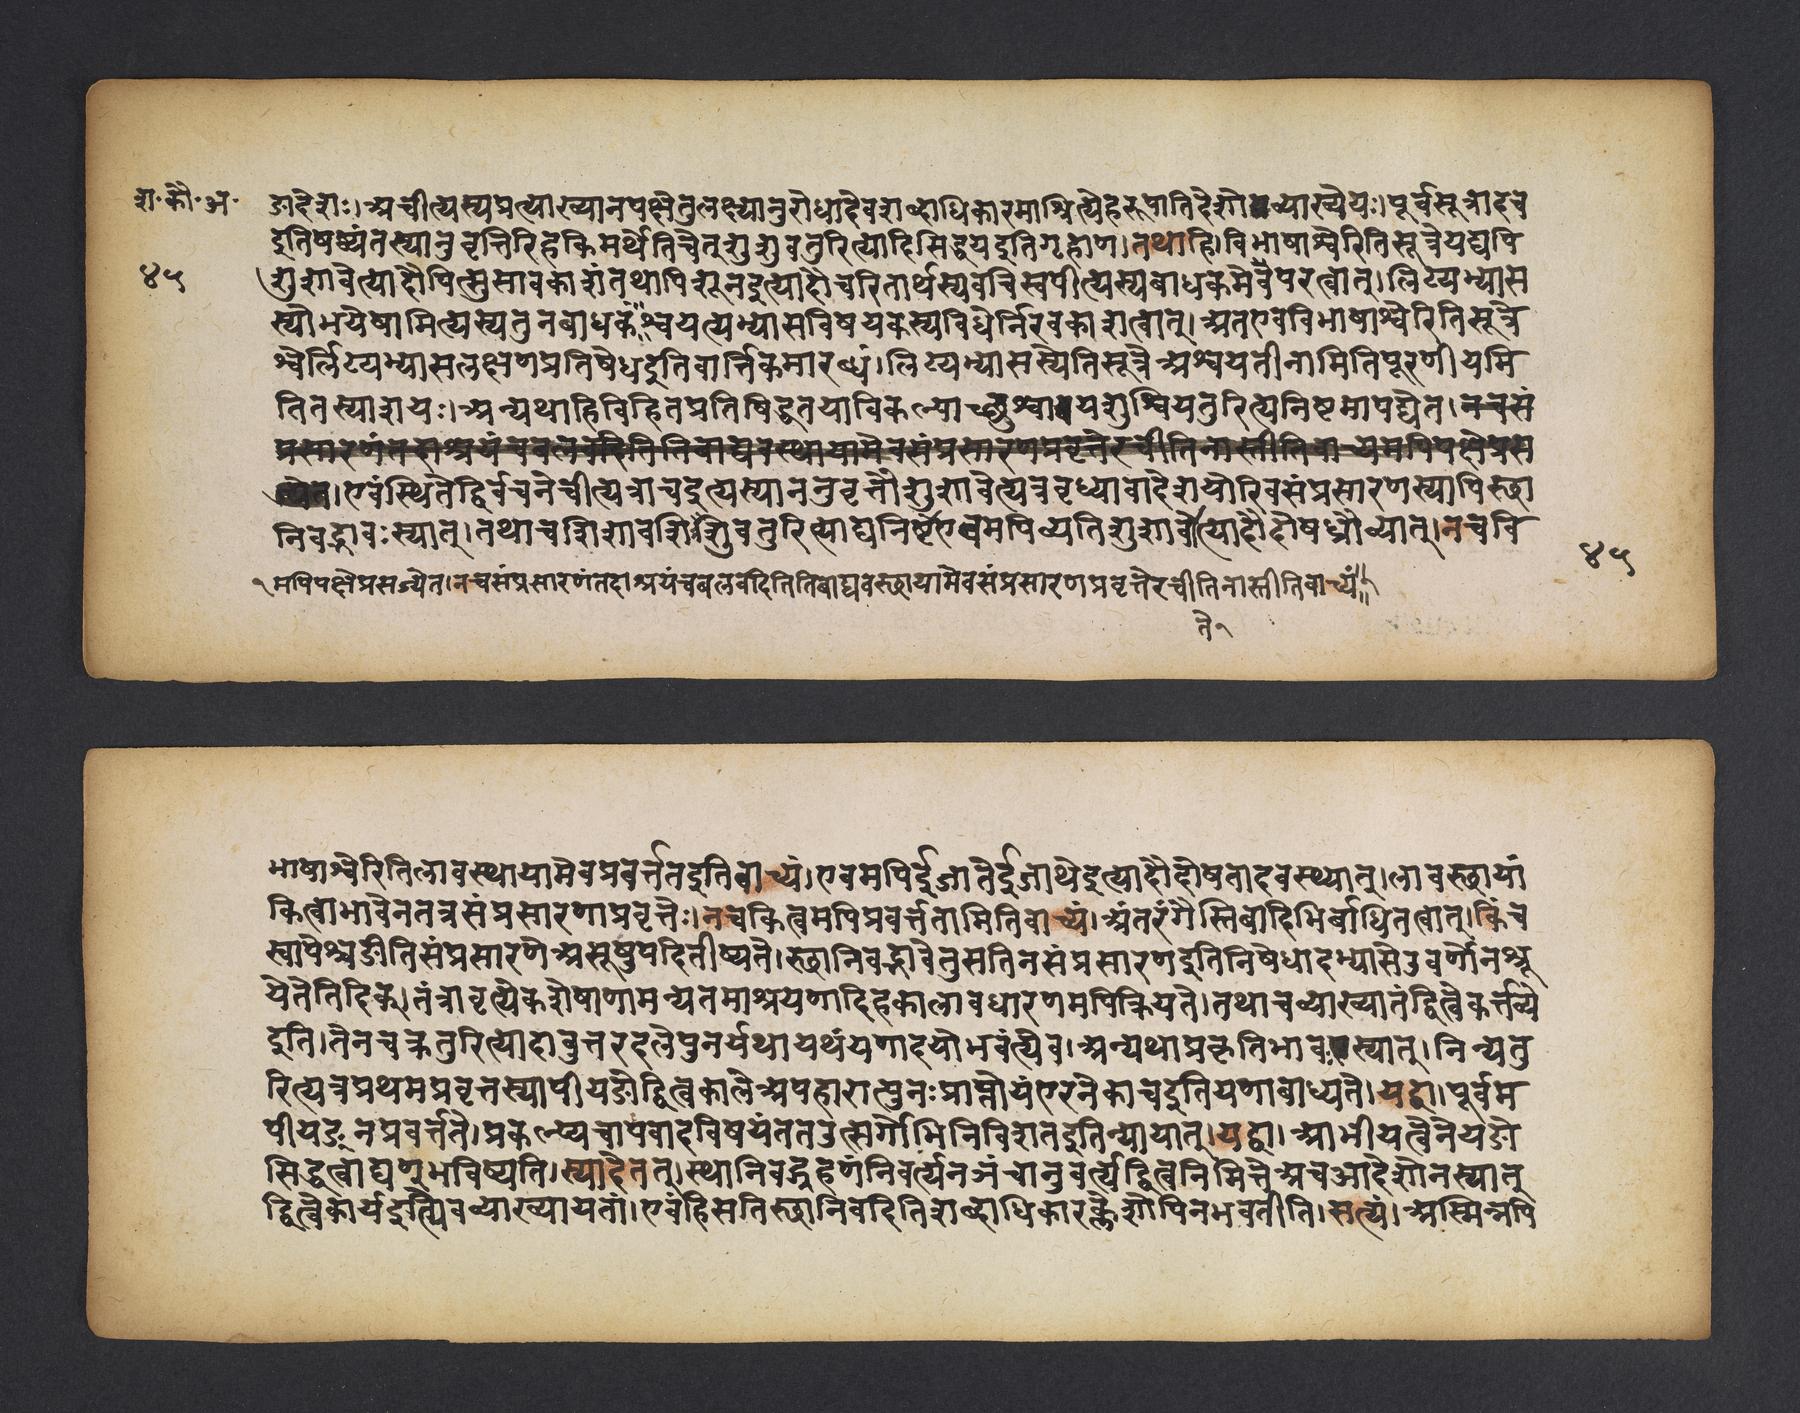 श॰कौ॰अ॰
४५
ङादेशः।अचीत्यस्यप्रत्याख्यानपक्षेतुलक्ष्यानुरोधादेवशब्दाधिकारमाश्रित्येहरूपातिदेशोव्याख्येयः।पूर्वसूत्रादच
इतिषष्ट्यंतस्यानुवृत्तिरिहकिमर्थेतिचेत्शुशुवतुरित्यादिसिद्धयइतिगृहाण।तथाहि।विभाषाश्वेरितिसूत्रेयद्यपि
शुशावेत्यादौपित्सुसावकाशंतथापिशूनइत्यादौचरितार्थस्यवचिस्वपीत्यस्यबाधकमेवपरत्वात्।लिट्यभ्यास
स्योभयेषामित्यस्यतुनबाधकंश्वयत्यभ्यासविषयकस्यविधेर्निरवकाशत्वात्।अतएवविभाषाश्वेरितिसूत्रे
श्वेर्लिट्यभ्यासलक्षणप्रतिषेधइतिवार्त्तिकमारब्धं।लिट्यभ्यासस्येतिसूत्रेअश्वयतीनामितिपूरणीयमि
तितस्याशयः।अन्यथाहिविहितप्रतिषिद्धतयाविकल्पाच्छुश्वायशुश्वियतुरित्यनिष्टमापद्येत।नचसं
प्रसारणंतदाश्रयंचबलवदितितिबाद्यवस्थायामेवसंप्रसारणप्रवृत्तेरचीतिनास्तीतिवाच्यमपिपक्षेप्रस
ज्येत।एवंस्थितेद्विर्वचनेचीत्यत्राचइत्यस्याननुवृत्तौशुशावेत्यत्रवृध्यावादेशयोरिवसंप्रसारणस्यापिस्था
निवद्भावःस्यात्।तथाचशिशावशिशुवतुरित्याद्यनिष्टंएवमपिव्यतिशुशावेत्यादौदोषध्रौव्यात्।नचवि
मपिपक्षेप्रसज्येत।नचसंप्रसारणंतदाश्रयंचबलवदितितिबाद्यवस्थायामेवसंप्रसारणप्रवृत्तेरचीतिनास्तीतिवाच्यं
ने९
४५
भाषाश्वेरितिलावस्थायामेवप्रवर्त्ततइतिवाच्यं।एवमपिईजातेईजाथेइत्यादौदोषतादवस्थ्यात्।लावस्थायां
कित्वाभावेनतत्रसंप्रसारणाप्रवृत्तेः।नचकित्वमपिप्रवर्त्ततामितिवाच्यं।अंतरंगैस्तिबादिभिर्बाधितत्वात्।किंच
स्वापेश्चङीतिसंप्रसारणेअसूषुपदितीष्यते।स्थानिवद्भावेतुसतिनसंप्रसारणइतिनिषेधादभ्यासेउवर्णोनश्रू
येतेतिदिक्।तंत्रावृत्त्येकशेषाणामन्यतमाश्रयणादिहकालावधारणमपिक्रियते।तथाचव्याख्यातंद्वित्वेकर्त्तव्ये
इति।तेनचक्रतुरित्यादावुत्तरदलेपुनर्यथायथंयणादयोभवंत्येव।अन्यथाप्रकृतिभावःस्यात्।निन्यतु
रित्यत्रप्रथमप्रवृत्तस्यापीयङोद्वित्वकालेअपहारात्पुनःप्राप्तोयंएरनेकाचइतियणाबाध्यते।यद्वा।पूर्वम
पीयङ्नप्रवर्त्तते।प्रकल्प्यचापवादविषयंततउत्सर्गोभिनिविशतइतिन्यायात्।यद्वा।आभीयत्वेनेयङो
सिद्धत्वाद्यण्भविष्यति।स्यादेतत्।स्थानिवद्ग्रहणंनिवर्त्यनञंचानुवर्त्यद्वित्वनिमित्तेअचआदेशोनस्यात्
द्वित्वेकार्यइत्येवव्याख्यायतां।एवंहिसतिस्थानिवदितिशब्दाधिकारक्लेशोपिनभवतीति।सत्यं।अस्मिन्नपि